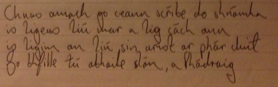 Chuas amach go ceann scríbe do shrámha
is ligeas liú mar a lig cách ann
is ligim an liú sin aríst ar phár duit
Go bhfille tú abhaile slán, a Phádraig